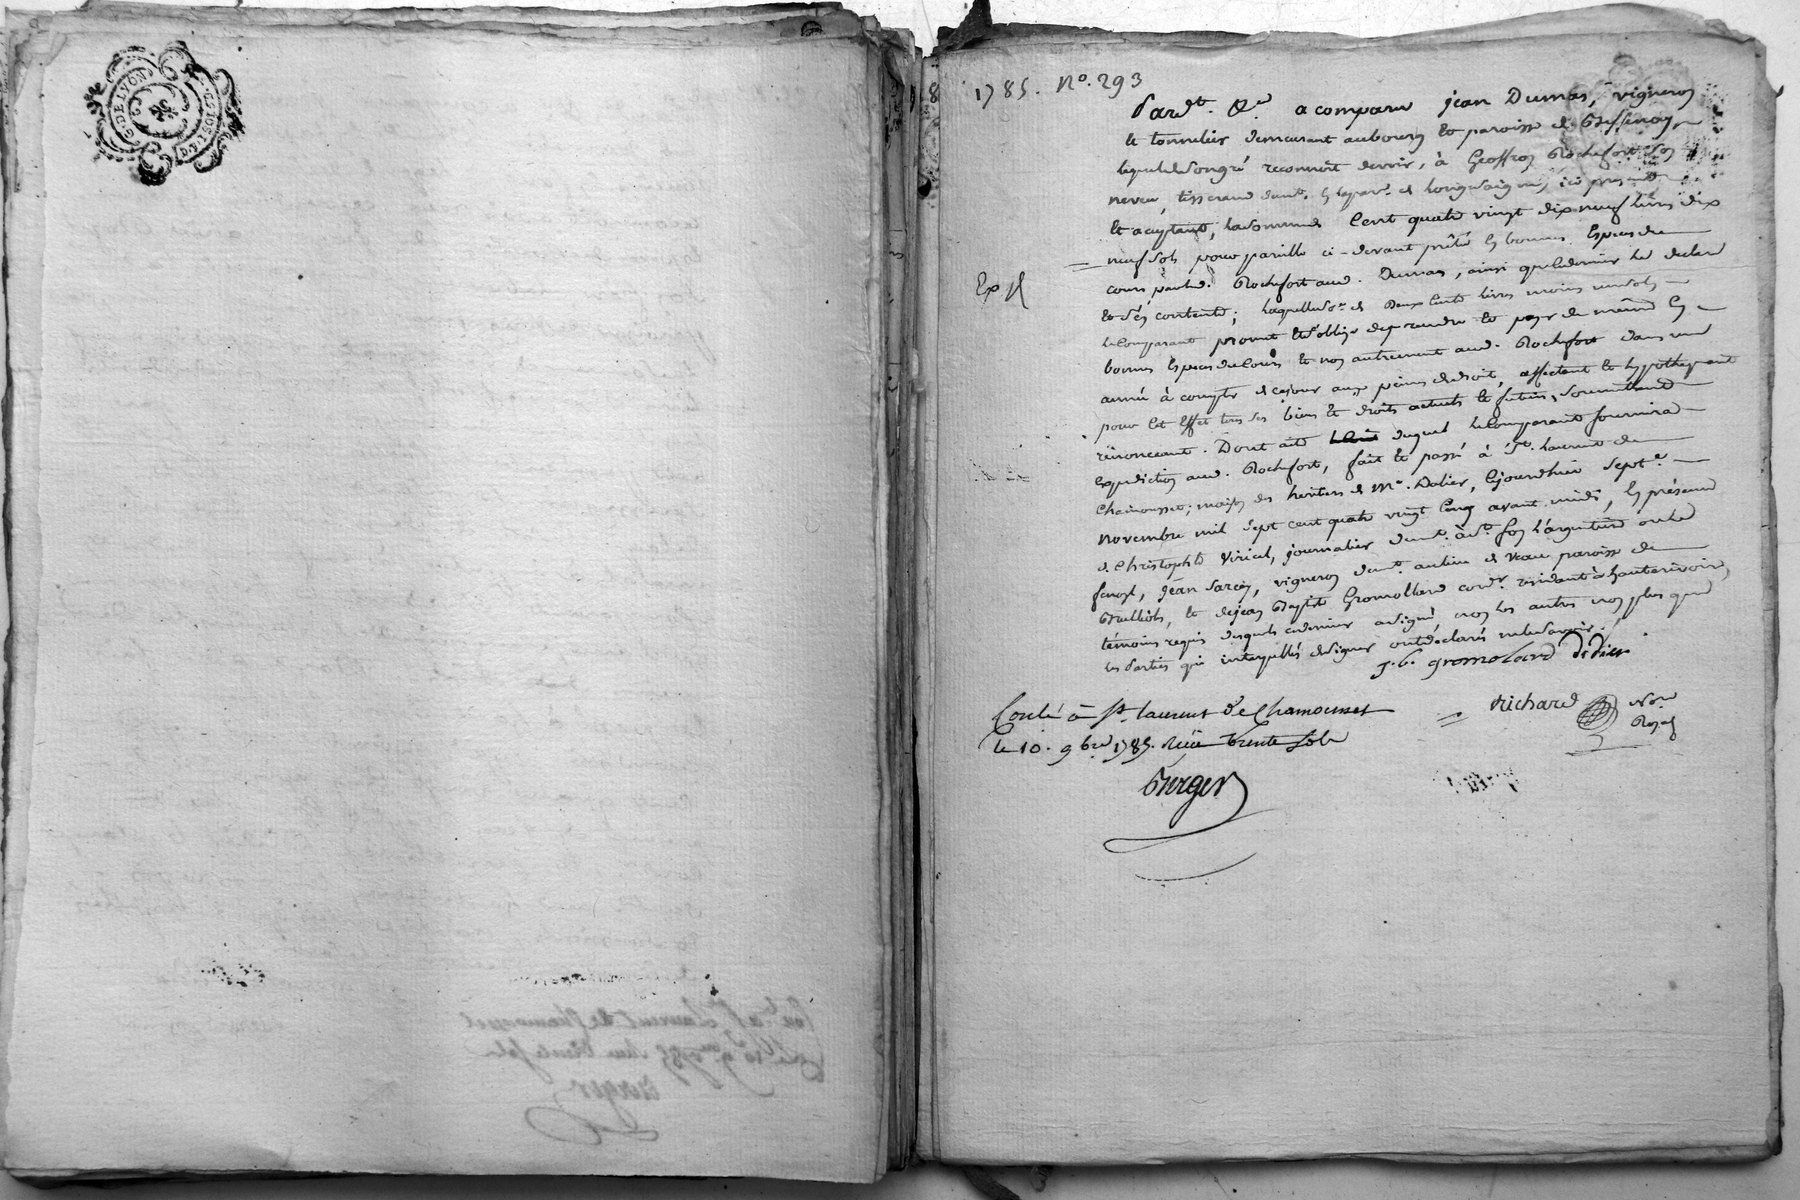 G. DE LYON
1785. N.° 293
Pard.t R.al a comparu jean Dumas, vigneron
et tonnelier demeurant au bourg et paroisse de Bessenay
lequel de son gré reconnoit devoir, à Geoffroy Rochefort son
neveu, tisserand dem.t en la par.e de Longesaigne, ici present
et acceptant, la somme de Cent quatre vingt dix neuf livres dix
neuf sols pour pareille ci-devant prêtée en bonnes Especes de
cours par led. Rochefort aud. Dumas, ainsi que ce dernier le declare
et s'en contente; laquelle so.e de Deux Cents livres moins un sols
Exp.
le Comparant promet et s'oblige de rendre et payer de même en
bonnes Especes de Cours et non autrement aud. Rochefort dans une
année à compter de ce jour aux peines de droit, affectant et hypothequant
pour cet Effet tous ses biens et droits actuels et futurs, soumettant
renonceant. Dont acte duquel le Comparant fournira
Expedition aud. Rochefort, fait et passé à S.t Laurent de
Chamousset; maison des heritiers de M.e Dalier, Cejourdhui sept.e
novembre mil sept cent quatre vingt cinq avant midi, En présence
de Christophe Viricel, journalier dem.t à S.t foy l'argentiere
jean , vigneron dem.t au lieu de paroisse de
et de jean Baptiste Gromollard cord.r résidant à hauterivoire,
témoins requis desquels ce dernier a signé non les autres non plus que
les Parties qui interpellés de signer ont déclarés ne le savoir.
j. b. gromolard Didier
Conlé à S.t Laurent de Chamousset
le 10. 9bre 1785. Reçu trente sols
Richard No.re
Royal
Berger